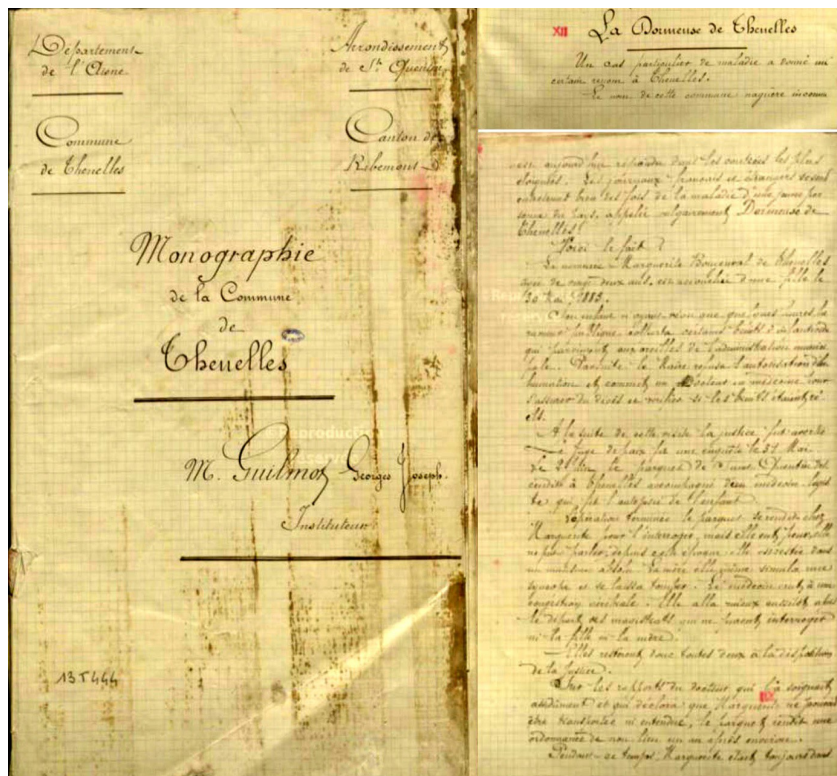 Département
de l'Aisne
Arrondissement
de St Quentin
Commune
de Thenelles
Canton de
Ribemont
Monographie
de la Commune
de
Thenelles
M. Guilmot Georges Joseph
Instituteur
13T444
XII La Dormeuse de Thenelles
Un cas particulier de maladie a donné un
certain renom à Thenelles.
Le nom de cette commune naguère inconnu
aujourd'hui répandu dans les contrées les plus
éloignées. Les journaux français et étrangers se sont
entretenus bien des fois de la maladie d'une jeune per
sonne du pays, appelée vulgairement, Dormeuse de
Thenelles!
Voici le fait?
La nommée Marguerite Bouyenval de Thenelles
âgée de vingt deux ans, est accouchée d'une fille le
30 Mai 1883.
Son enfant n'ayant vécu que quelques heures, la
rumeur publique colporta certains bruits d'infanticide
qui parvinrent aux oreilles de l'administration munici
pale. Par suite le Maire refusa l'autorisation d'in
humation et commit un Docteur en médecine pour
s'assurer du décès et vérifier si les bruits étaient ré
els.
A la suite de cette visite la justice fut avertie
Le juge de paix fit une enquête le 31 Mai
le parquet de Saint Quentin se
rendit à Thenelles accompagné d'un médecin légis
te qui fit l'autopsie de l'enfant.
L'opération terminée le parquet se rendit chez
Marguerite pour l'interroger, mais elle
ne pas parler, depuis cette époque elle est restée dans
un mutisme absolu. La mère elle même simula une
syncope et se laissa tomber. Le médecin crut à une
congestion cérébrale. Elle alla mieux aussitôt après
le départ des magistrats qui ne purent interroger
ni la fille ni la mère.
Elles restèrent donc toutes deux à la disposition
de la justice.
Sur les rapports du docteur qui l'a soignait
assidûment et qui déclara que Marguerite ne pouvait
être transportée ni entendue, le parquet rendit une
ordonnance de non lieu un an après environ.
Pendant ce temps Marguerite était toujours dans